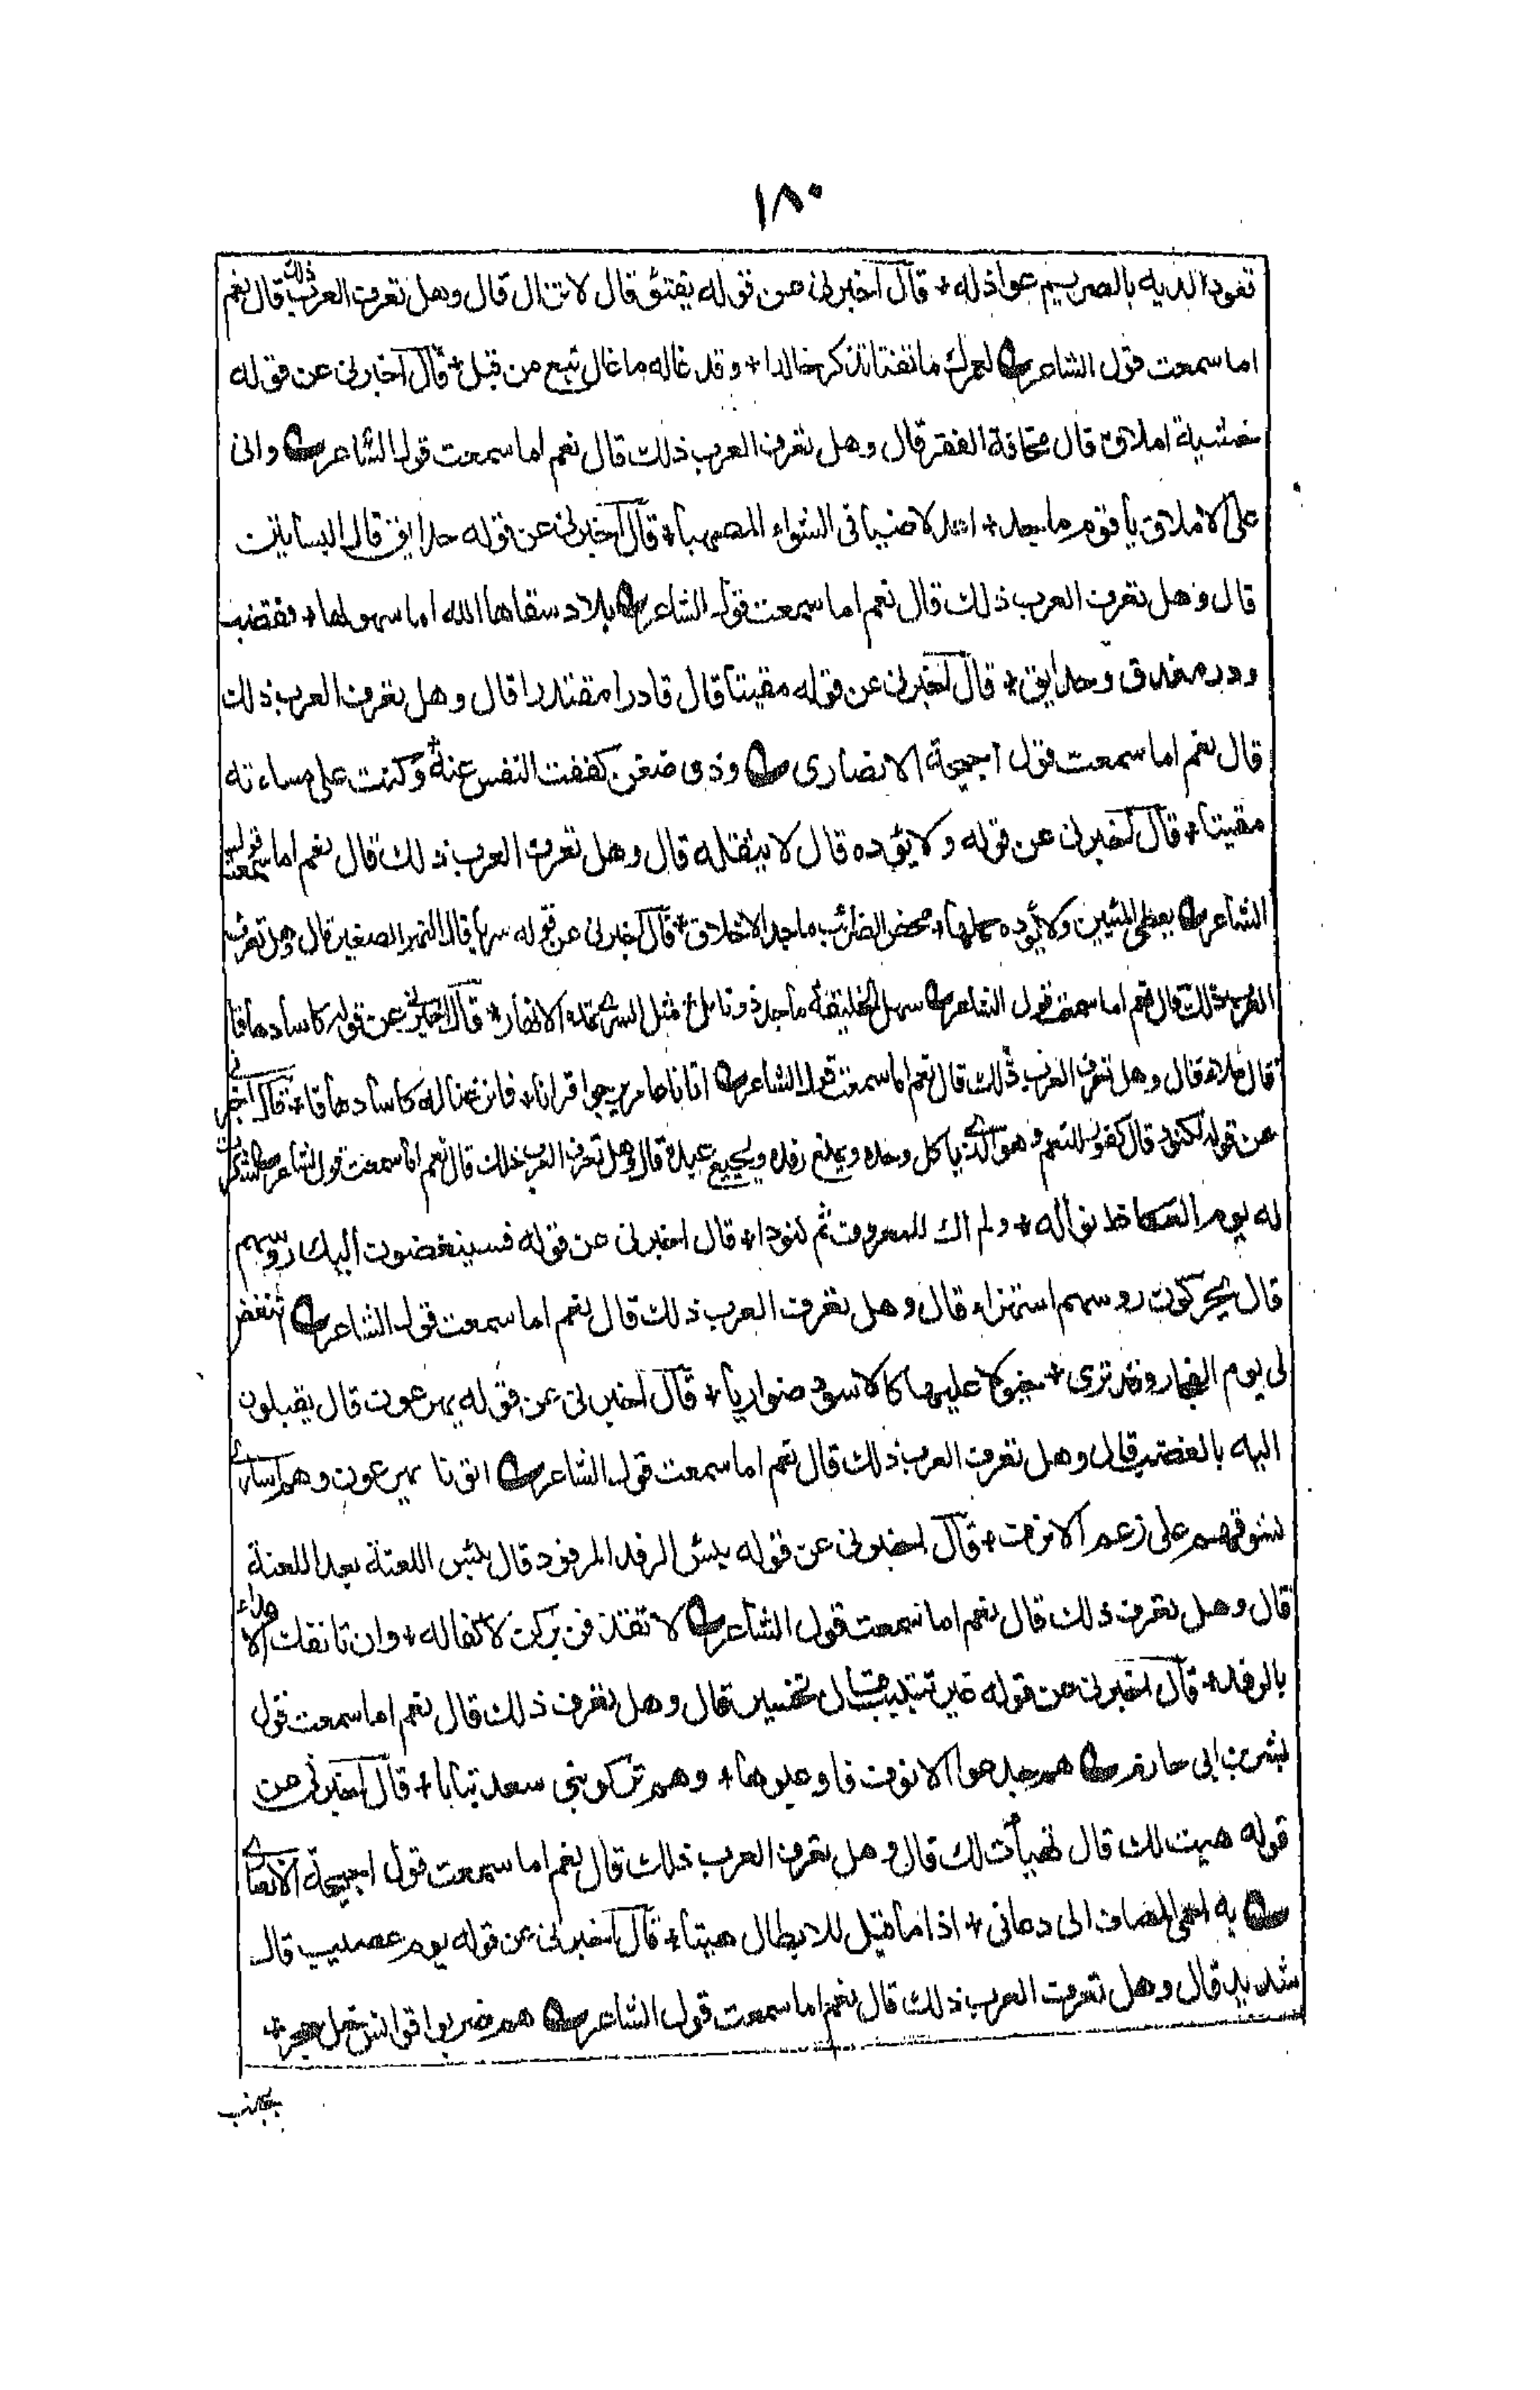 ١٨٠
قعودا لديه بالصريم عواذله + قال اخبرني عن قوله تفتؤ قال لا تزال قال وهل تعرف العرب ذلك قال نعم
اما سمعت قول الشاعر لعمرك ما تفتا تذكر خالدا + وقد غاله ما غال تبع من قبل + قال اخبرني عن قوله
خشية املاق قال مخافة الفقر قال وهل تعرف العرب ذلك قال نعم اما سمعت قول الشاعر وانى
على الاملاق يا قوم ماجد + اعد لاضيافي الشواء المصهبا + قال اخبرني عن قوله حدايق قال البساتين
قال وهل تعرف العرب ذلك قال نعم اما سمعت قول الشاعر بلاد سقاها الله اما سهولها + فقضب
ودر مغدق وحدايق + قال اخبرني عن قوله مقيتا قال قادرا مقتدرا قال وهل تعرف العرب ذلك
قال نعم اما سمعت قول احيحة الانصارى وذى ضغن كففت النفس عنه + وكنت على مساءته
مقيتا + قال اخبرني عن قوله ولا يؤده قال لا يثقله قال وهل تعرف العرب ذلك قال نعم اما سمعت قول
الشاعر يعطي المئين ولا يؤده حملها + محض الضرائب ماجد الاخلاق + قال اخبرني عن قوله سريا قال النهر الصغير قال وهل تعرف
العرب ذلك قال نعم اما سمعت قول الشاعر سهل الخليقة ماجد ذو نائل + مثل السرى تمده الانهار + قال اخبرني عن قوله كاسا دهاقا
قال ملاه قال وهل تعرف العرب ذلك قال نعم اما سمعت قول الشاعر اتانا عامر يرجوا قرانا + فاترعنا له كاسا دهاقا + قال اخبرني
عن قوله لكنود قال كفور للنعم وهو الذى ياكل وحده ويمنع رفده ويجيع عبده قال وهل تعرف العرب ذلك قال نعم اما سمعت قول الشاعر شكرت
له يوم العكاظ نواله + ولم اك للمعروف ثم كنودا + قال اخبرني عن قوله فسينغضون اليك روسهم
قال يحركون روسهم استهزاء قال وهل تعرف العرب ذلك قال نعم اما سمعت قول الشاعر اتنغض
لى يوم الفجار وقد ترى + خيولا عليها كالاسود ضواريا + قال اخبرني عن قوله يهرعون قال يقبلون
اليه بالغضب قال وهل تعرف العرب ذلك قال نعم اما سمعت قول الشاعر اتونا يهرعون وهم اسارى
نسوقهم على زعم الانوف + قال اخبرني عن قوله بئس الرفد المرفود قال بئس اللعنة بعد اللعنة
قال وهل تعرف ذلك قال نعم اما سمعت قول الشاعر لا تقذفن بركن لا كفا له + وان تاثفك الاعداء
بالرفد + قال اخبرني عن قوله غير تتبيب قال تخسير قال وهل تعرف ذلك قال نعم اما سمعت قول
بشر بن ابى حازم هم جدعوا الانوف فاوعبوها + وهم تركوا بنى سعد تبابا + قال اخبرني عن
قوله هيت لك قال تهيأت لك قال وهل تعرف العرب ذلك قال نعم اما سمعت قول احيحة الانصارى
به احمى المضاف اذا دعانى + اذا ما قيل للابطال هيتا + قال اخبرني عن قوله يوم عصيب قال
شديد قال وهل تعرف العرب ذلك قال نعم اما سمعت قول الشاعر هم ضربوا قوانس خيل حجر +
بجنب